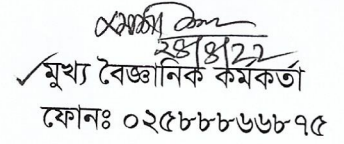 ২৪/৪/২২
মুখ্য বৈজ্ঞানিক কর্মকর্তা
ফোনঃ ০২৫৮৮৮৬৬৮৭৫